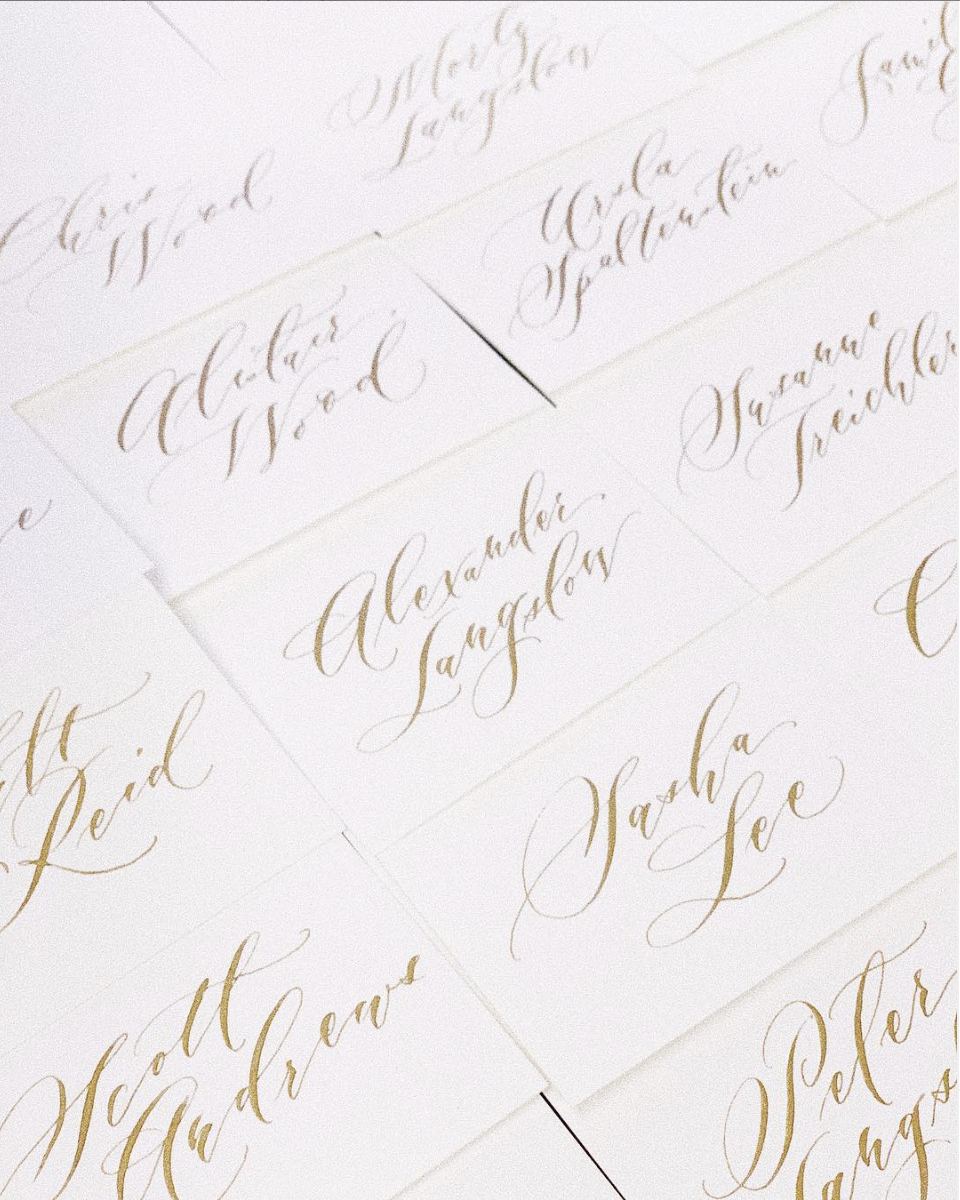 Langslow
Chris
Wood
Ursula
Spaltenstein
Wood
Susanne
Treichler
Alexander
Langslow
Reid
Sasha
Lee
Scott
Andrews
Peter